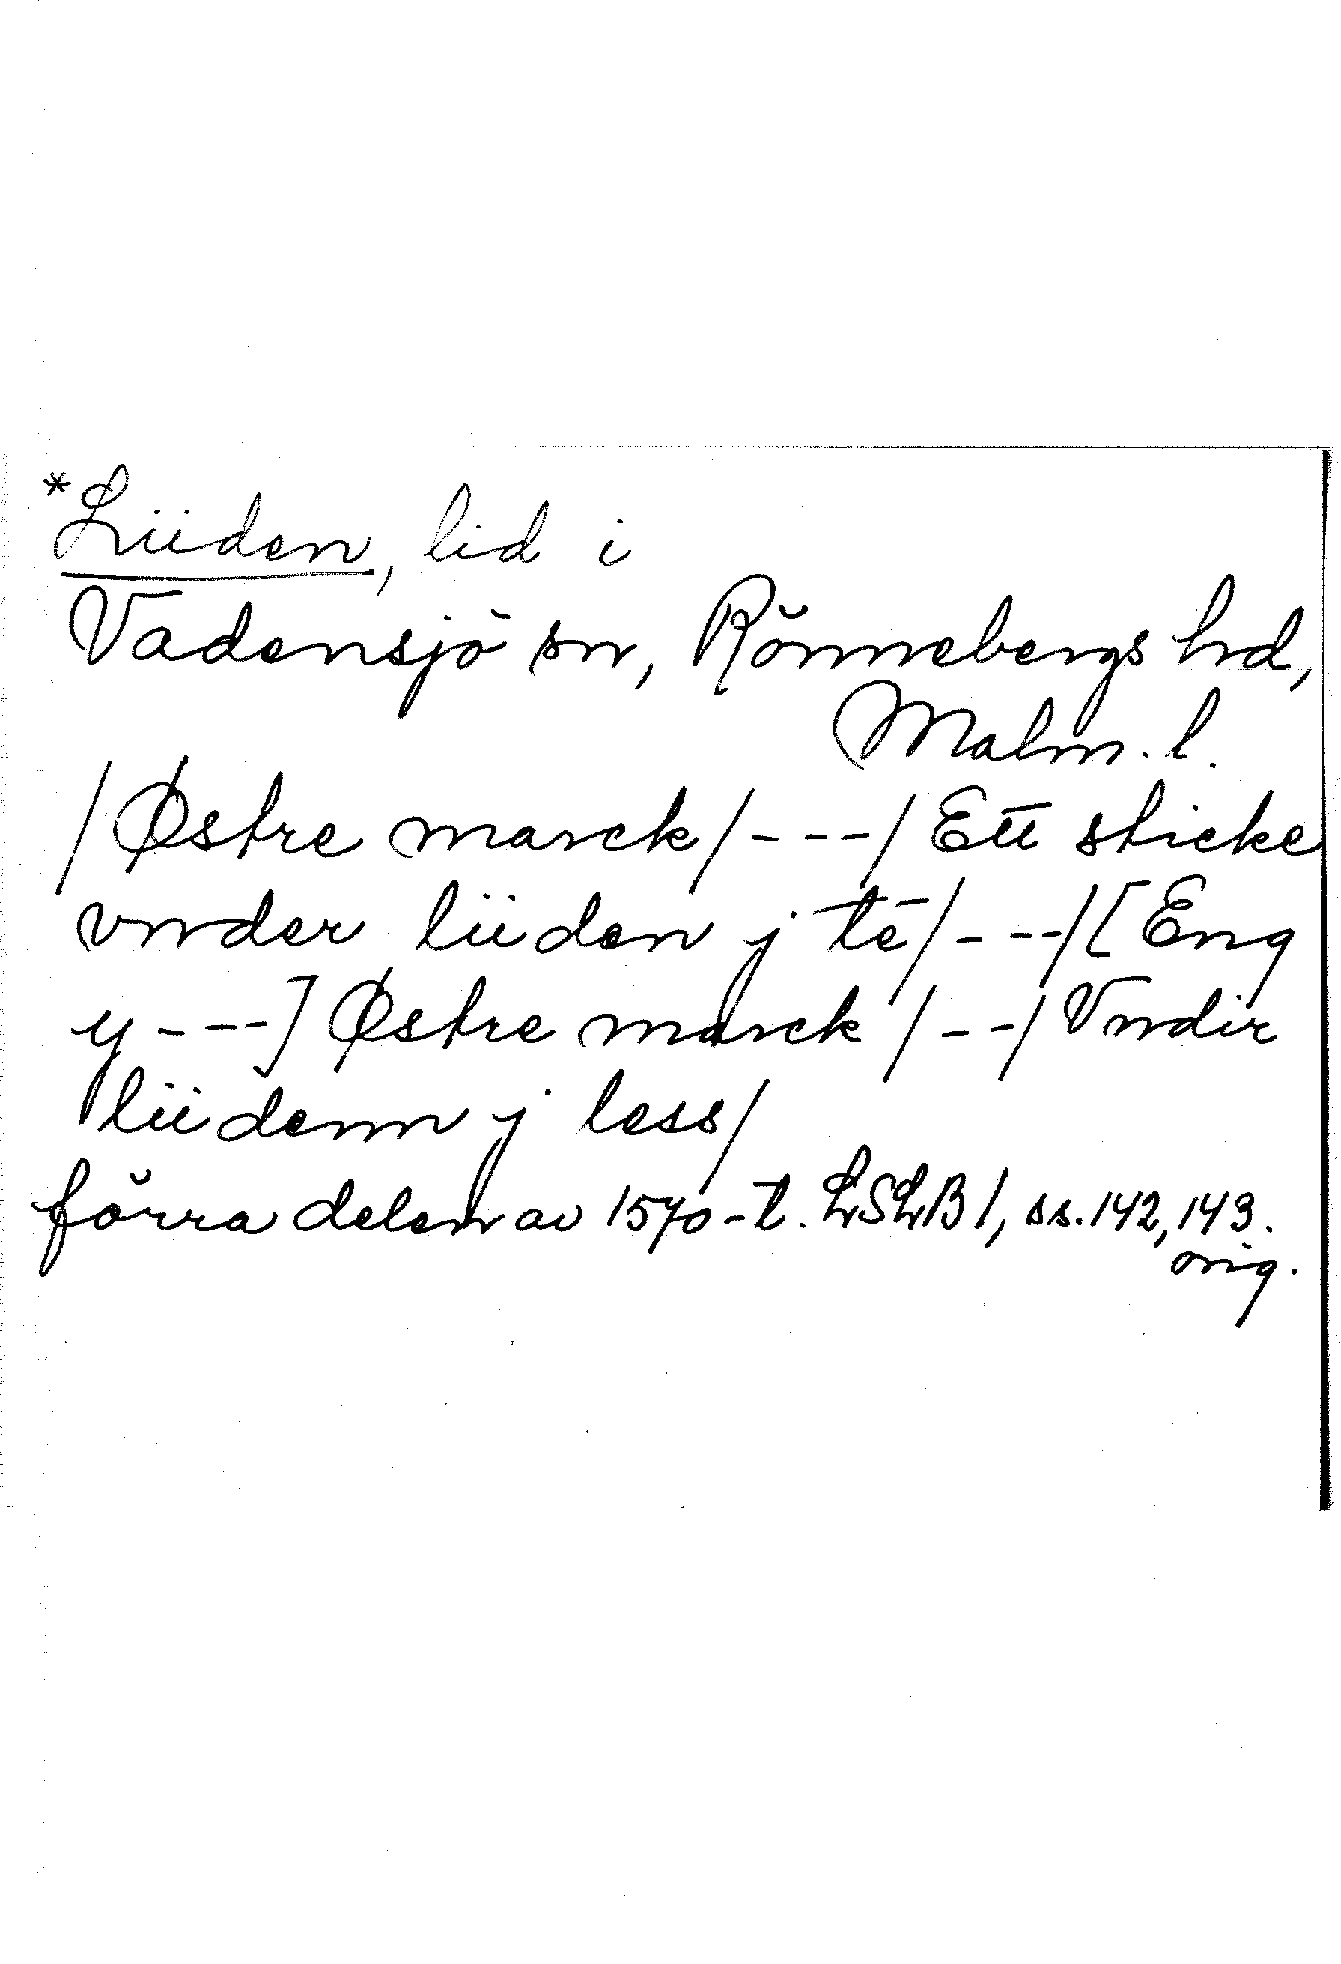 *Liiden, lid i
Vadensjö sn, Rönnebergs hrd,
Malm. l.
/Østre marck/---/Ett sticke
vnder liiden j te/---/[Eng
y---] Østre marck/--/Vndir
liidenn j less/
förra delen av 1570-t. LSLB I, ss. 142, 143.
orig.